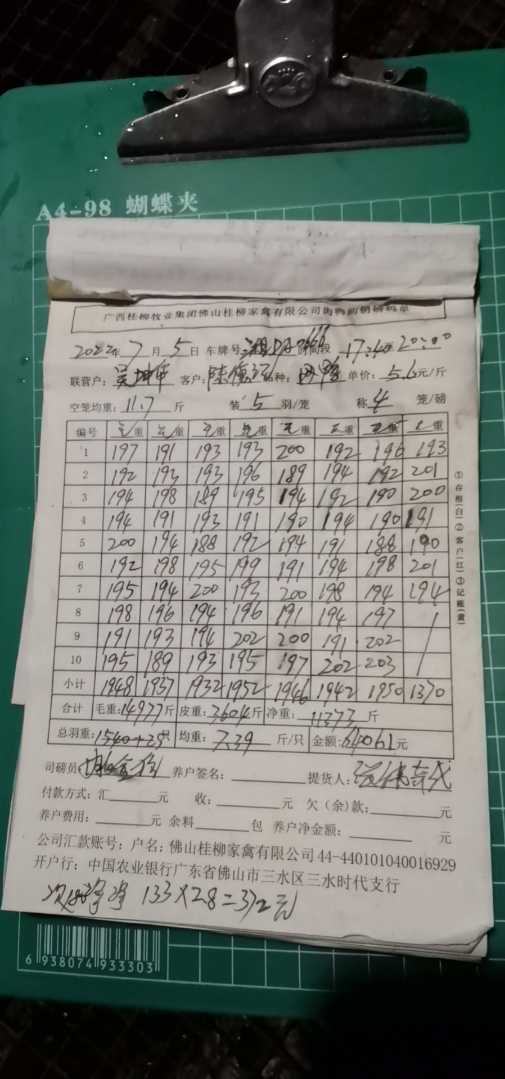 A4-98 蝴蝶夹
广西桂柳牧业集团佛山桂柳家禽有限公司肉鸭购销磅码单
2022年 7月 5日 车牌号 17:40 20:00
联营户: 吴 客户: 陈 品种: 单价: 5.6元/斤
空笼均重: 11.7 斤 装 5 羽/笼 称 4 笼/磅
编号 毛重 毛重 毛重 毛重 毛重 毛重 毛重 毛重
1 197 191 193 193 200 192 196 193
2 192 193 193 196 189 194 192 201
3 194 198 189 195 194 192 190 200
4 194 191 193 191 190 194 190 191
5 200 194 188 192 194 191 188 190
6 192 198 195 199 191 194 198 201
7 195 194 200 193 200 198 194 194
8 198 196 194 196 191 194 197
9 191 193 194 202 200 191 202
10 195 189 193 195 197 202 203
小计 1948 1937 1932 1952 1946 1942 1950 1370
合计 毛重: 14977斤 皮重: 3604斤 净重: 11373 斤
总羽重: 1540+ 只 均重: 7.39 斤/只 金额: 元
司磅员 养户签名: 提货人:
付款方式: 汇 元 收: 元 欠(余)款: 元
养户费用: 元 余料 包 养户净金额: 元
公司汇款账号: 户名: 佛山桂柳家禽有限公司 44-440101040016929
开户行: 中国农业银行广东省佛山市三水区三水时代支行
133×28=372元
①存根(白)②客户(红)③记账(黄)
6 938074 933303